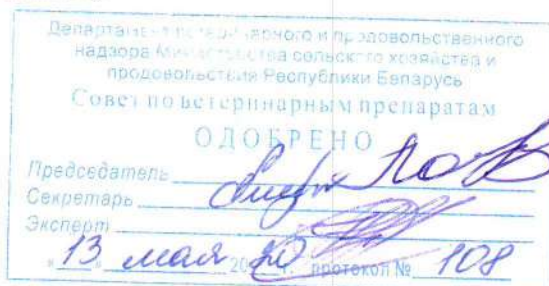 Департамент ветеринарного и продовольственного
надзора Министерства сельского хозяйства и
продовольствия Республики Беларусь
Совет по ветеринарным препаратам
ОДОБРЕНО
Председатель
Секретарь
Эксперт
"13" мая 2020 г. протокол № 108